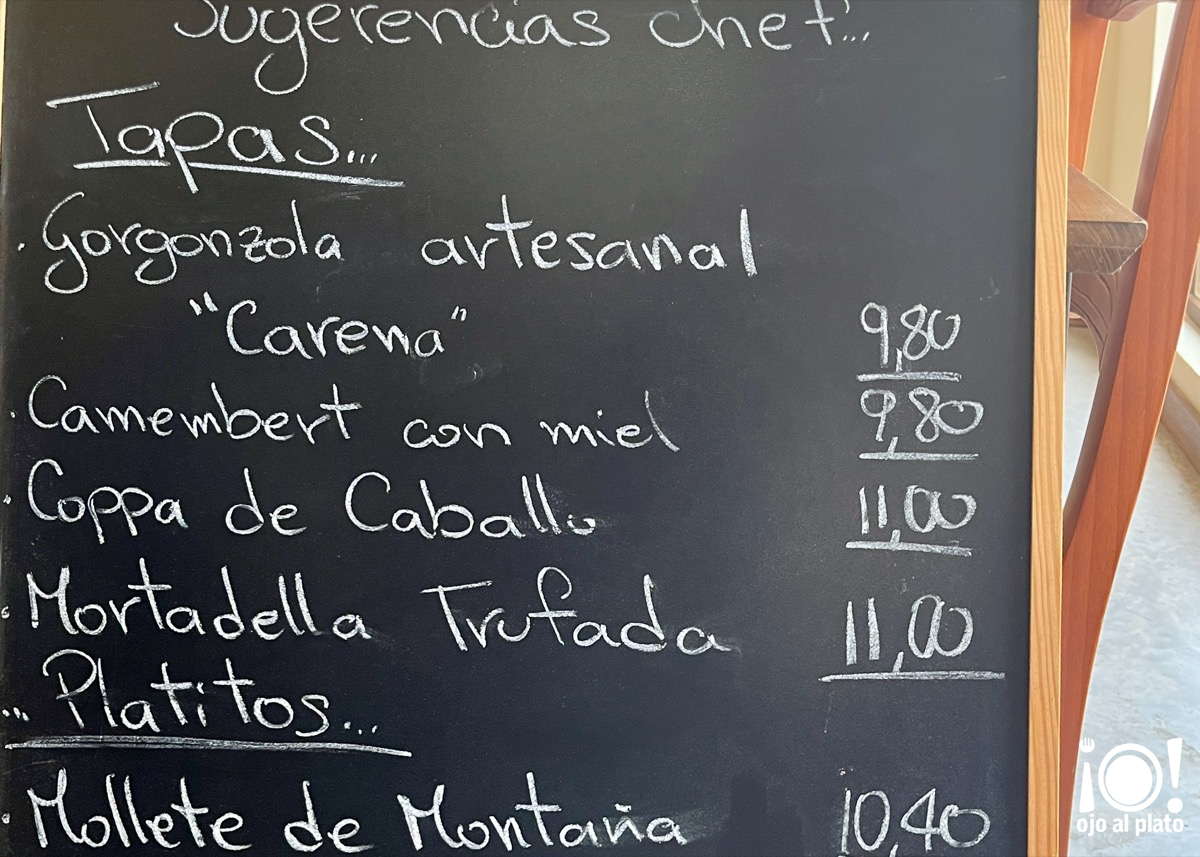 Sugerencias chef...
Tapas...
· Gorgonzola artesanal
"Carena" 9,80
· Camembert con miel 9,80
· Coppa de Caballo 11,00
· Mortadella Trufada 11,00
... Platitos...
· Mollete de Montaña 10,40
¡O!
ojo al plato